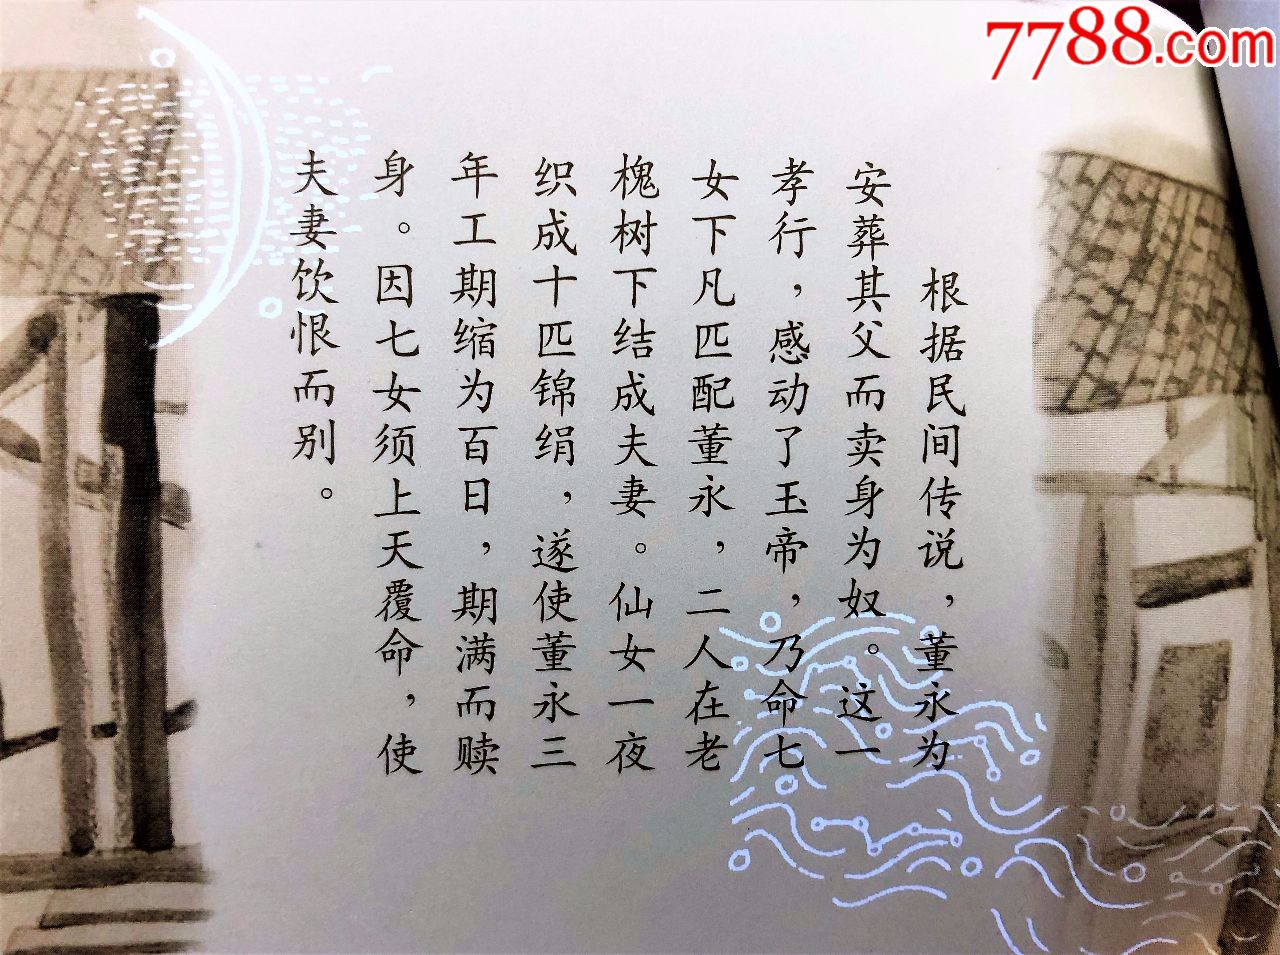 7788.com
根据民间传说，董永为
安葬其父而卖身为奴。这一
孝行，感动了玉帝，乃命七
女下凡匹配董永，二人在老
槐树下结成夫妻。仙女一夜
织成十匹锦绢，遂使董永三
年工期缩为百日，期满而赎
身。因七女须上天覆命，使
夫妻饮恨而别。